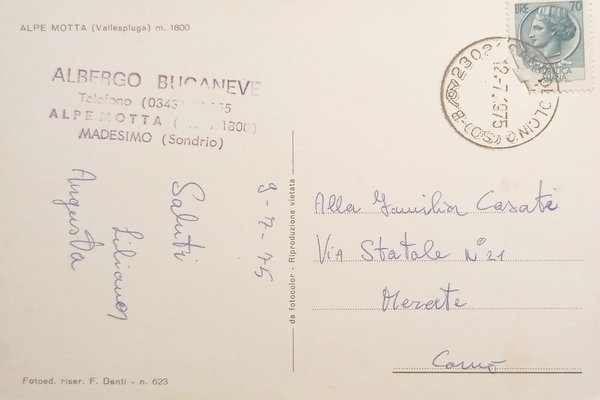 ALPE MOTTA (Vallespluga) m. 1800
ALBERGO BUCANEVE
Telefono (0343)
ALPE MOTTA ( 1800)
MADESIMO (Sondrio)
9-7-75
Saluti
Liliana
Augusta
LIRE 70
12-7-1975
Alla Famiglia Casati
Via Statale N° 21
Merate
Como
da fotocolor - Riproduzione vietata
Fotoed. riser. F. Denti - n. 623